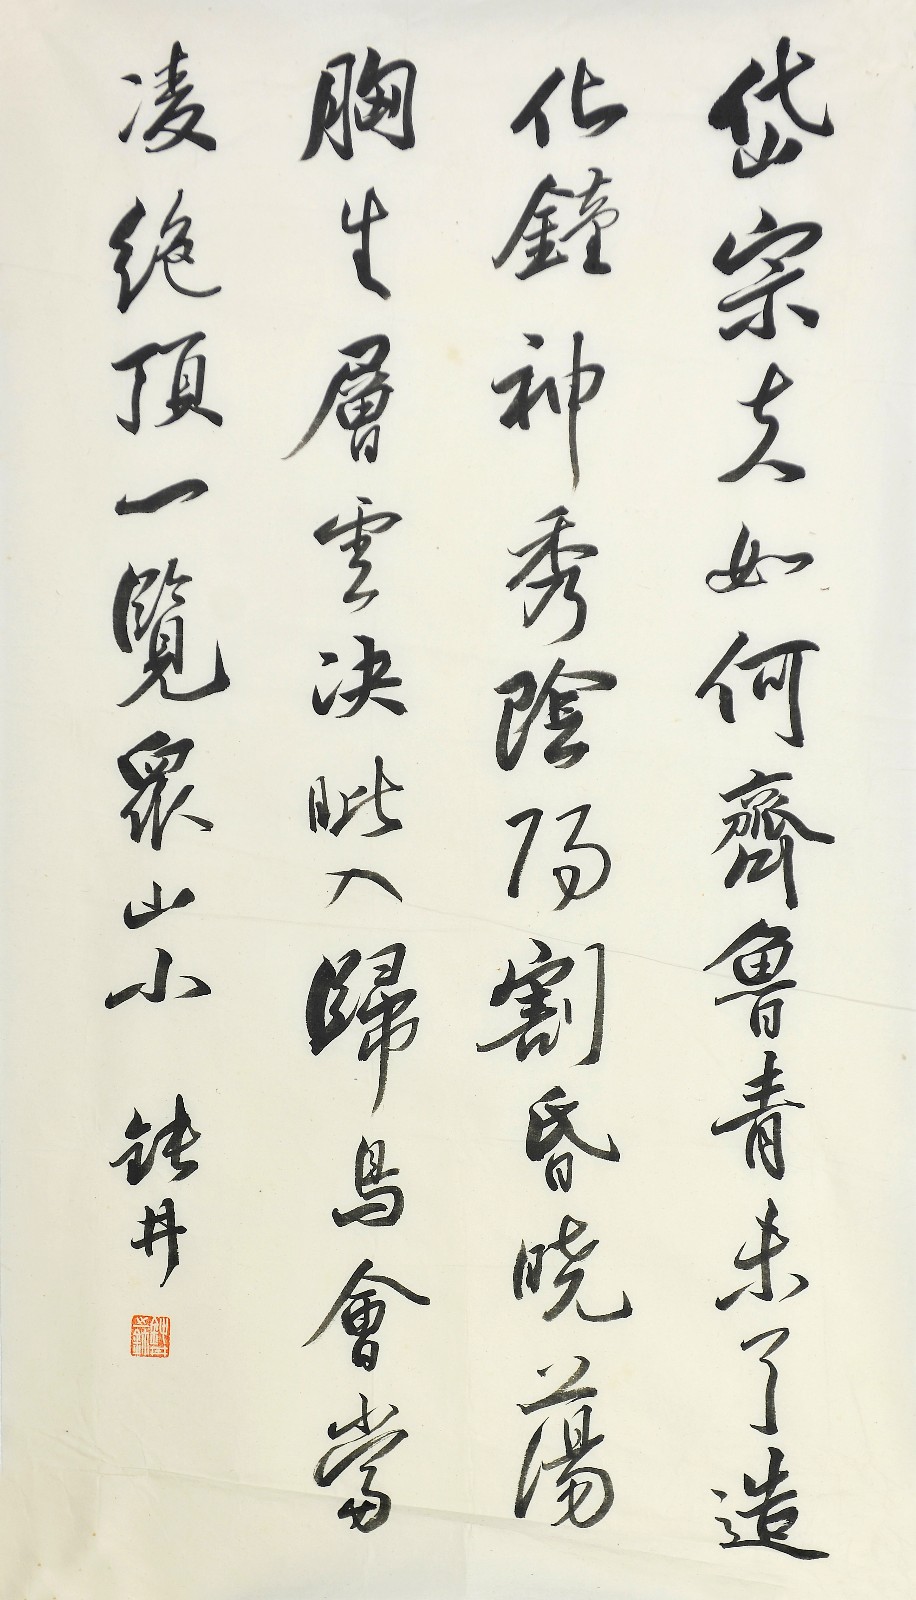 岱宗夫如何齊魯青未了造
化鐘神秀陰陽割昏曉蕩
胸生層雲决眦入歸鳥會當
凌絶頂一覽眾山小